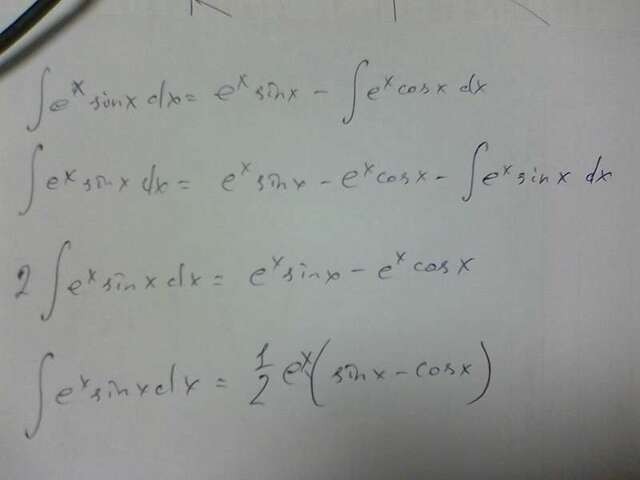 ∫eˣ sinx dx = eˣ sinx - ∫eˣ cosx dx
∫eˣ sinx dx = eˣ sinx - eˣ cosx - ∫eˣ sinx dx
2 ∫eˣ sinx dx = eˣ sinx - eˣ cosx
∫eˣ sinx dx = 1/2 eˣ (sinx - cosx)